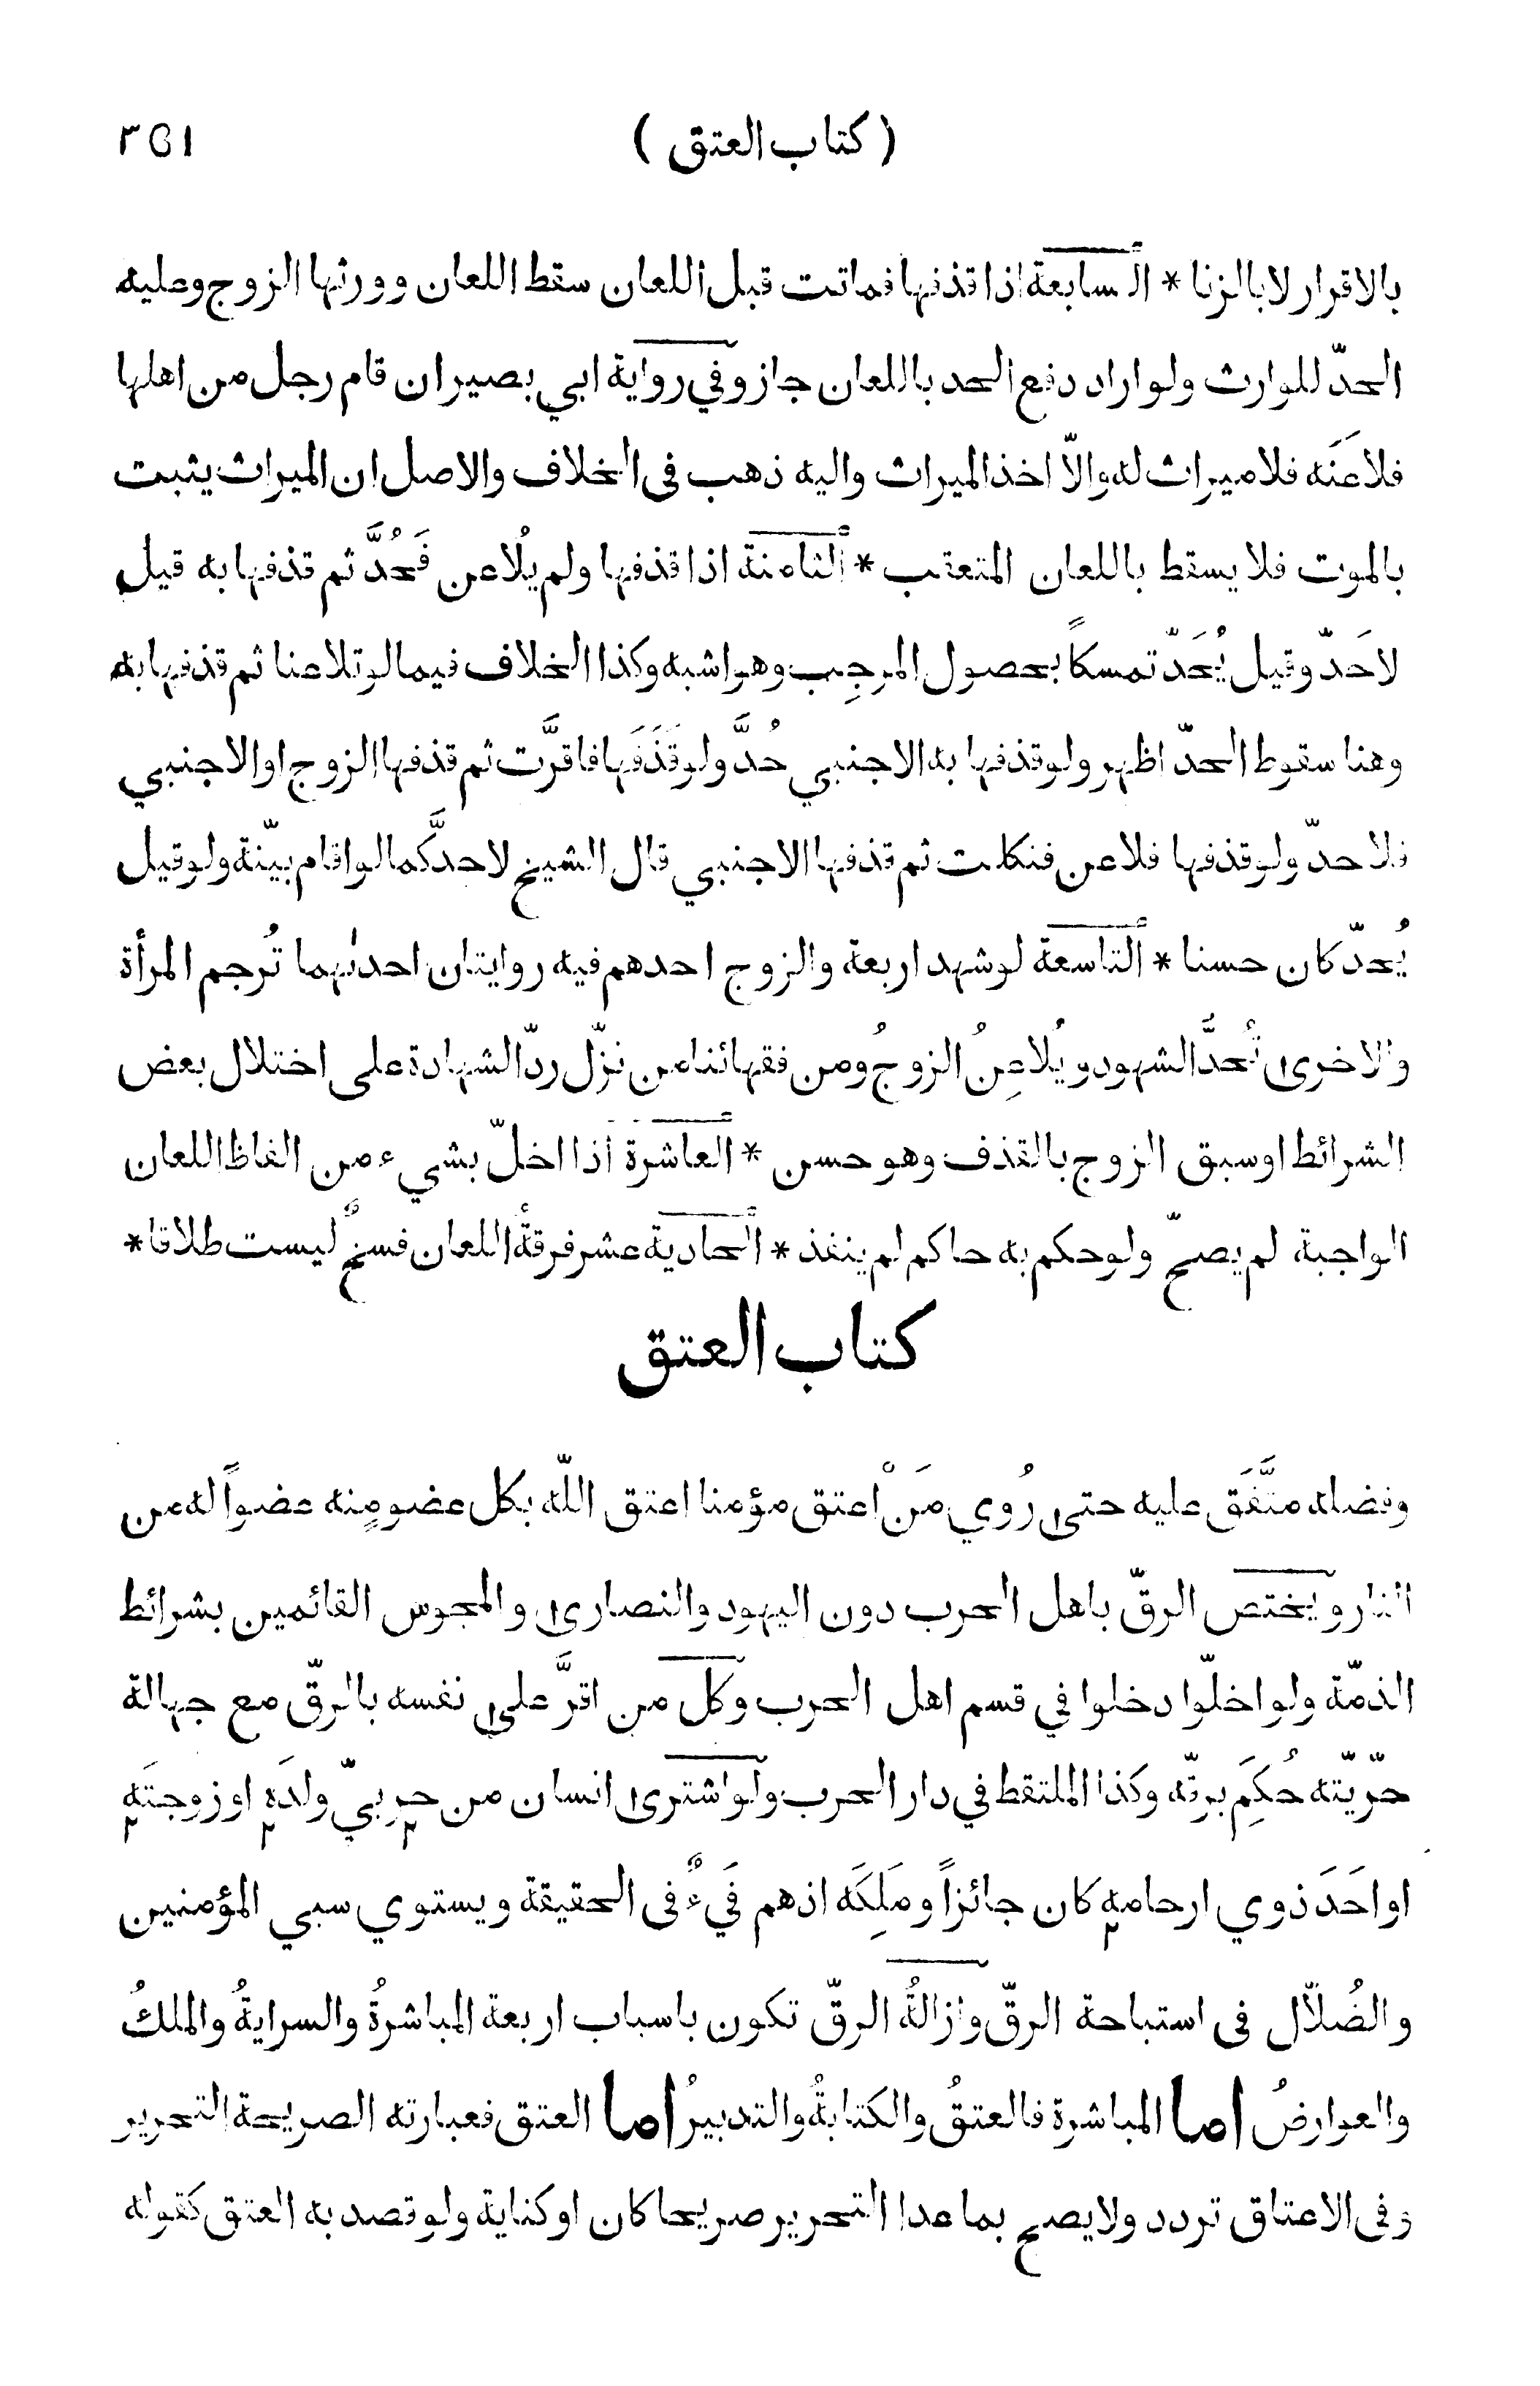 ( كتاب العتق ) ٣٥١
بالاقرار لا بالزنا * السابعة اذا قذفها فماتت قبل اللعان سقط اللعان وورثها الزوج وعليه
الحدّ للوارث ولو اراد دفع الحد باللعان جاز وفي رواية ابي بصير ان قام رجل من اهلها
فلاعَنَه فلا ميراث له والاّ اخذ الميراث واليه ذهب فى الخلاف والاصل ان الميراث يثبت
بالموت فلا يسقط باللعان المتعقب * الثامنة اذا قذفها ولم يُلاعن فَحُدَّ ثم قذفها به قيل
لا حَدّ وقيل يُحَدّ تمسكاً بحصول الموجِب وهو اشبه وكذا الخلاف فيما لو تلاعنا ثم قذفها به
وهنا سقوط الحدّ اظهر ولو قذفها به الاجنبي حُدَّ ولو قَذَفَها فاقرَّت ثم قذفها الزوج او الاجنبي
فلا حدّ ولو قذفها فلاعن فنكلت ثم قذفها الاجنبي قال الشيخ لا حدَّ كما لو اقام بيّنة ولو قيل
يُحدّ كان حسنا * التاسعة لو شهد اربعة والزوج احدهم فيه روايتان احدىٰهما تُرجم المرأة
والاخرىٰ تُحدَّ الشهود ويُلاعِنُ الزوجُ ومن فقهائنا من نزّل ردّ الشهادة على اختلال بعض
الشرائط او سبق الزوج بالقذف وهو حسن * العاشرة اذا اخلّ بشيء من الفاظ اللعان
الواجبة لم يصحّ ولو حكم به حاكم لم ينفذ * الحادية عشر فرقةُ اللعان فسخٌ ليست طلاقا *
كتاب العتق
وفضله متَّفَق عليه حتىٰ رُوي مَنْ اعتق مؤمنا اعتق اللّه بكل عضو منه عضواً له من
النار ويختص الرقّ باهل الحرب دون اليهود والنصارىٰ والمجوس القائمين بشرائط
الذمّة ولو اخلّوا دخلوا في قسم اهل الحرب وكل من اقرَّ علىٰ نفسه بالرقّ مع جهالة
حرّيّته حُكِمَ برقّه وكذا الملتقط في دار الحرب ولو اشترىٰ انسان من حربيّ ولدَه او زوجتَه
او احَدَ ذوي ارحامه كان جائزاً ومَلِكَه اذ هم فَيءٌ فى الحقيقة ويستوي سبي المؤمنين
والضُلاّل فى استباحة الرقّ وازالةُ الرقّ تكون باسباب اربعة المباشرةُ والسرايةُ والملكُ
والعوارضُ اما المباشرة فالعتقُ والكتابةُ والتدبيرُ اما العتق فعبارته الصريحة التحرير
وفى الاعتاق تردد ولا يصح بما عدا التحرير صريحا كان او كناية ولو قصد به العتق كقوله